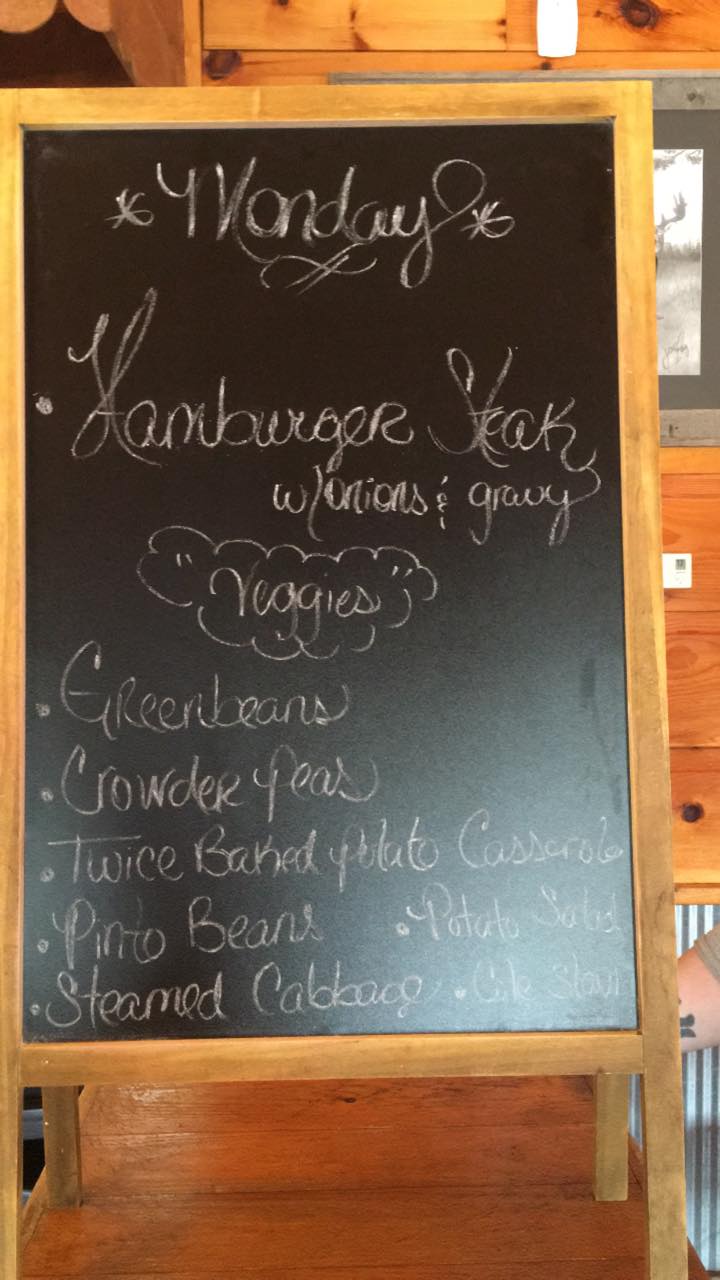 *Monday*
• Hamburger Steak
w/onions & gravy
"Veggies"
• Greenbeans
• Crowder Peas
• Twice Baked Potato Casserole
• Pinto Beans • Potato Salad
• Steamed Cabbage • Cole Slaw